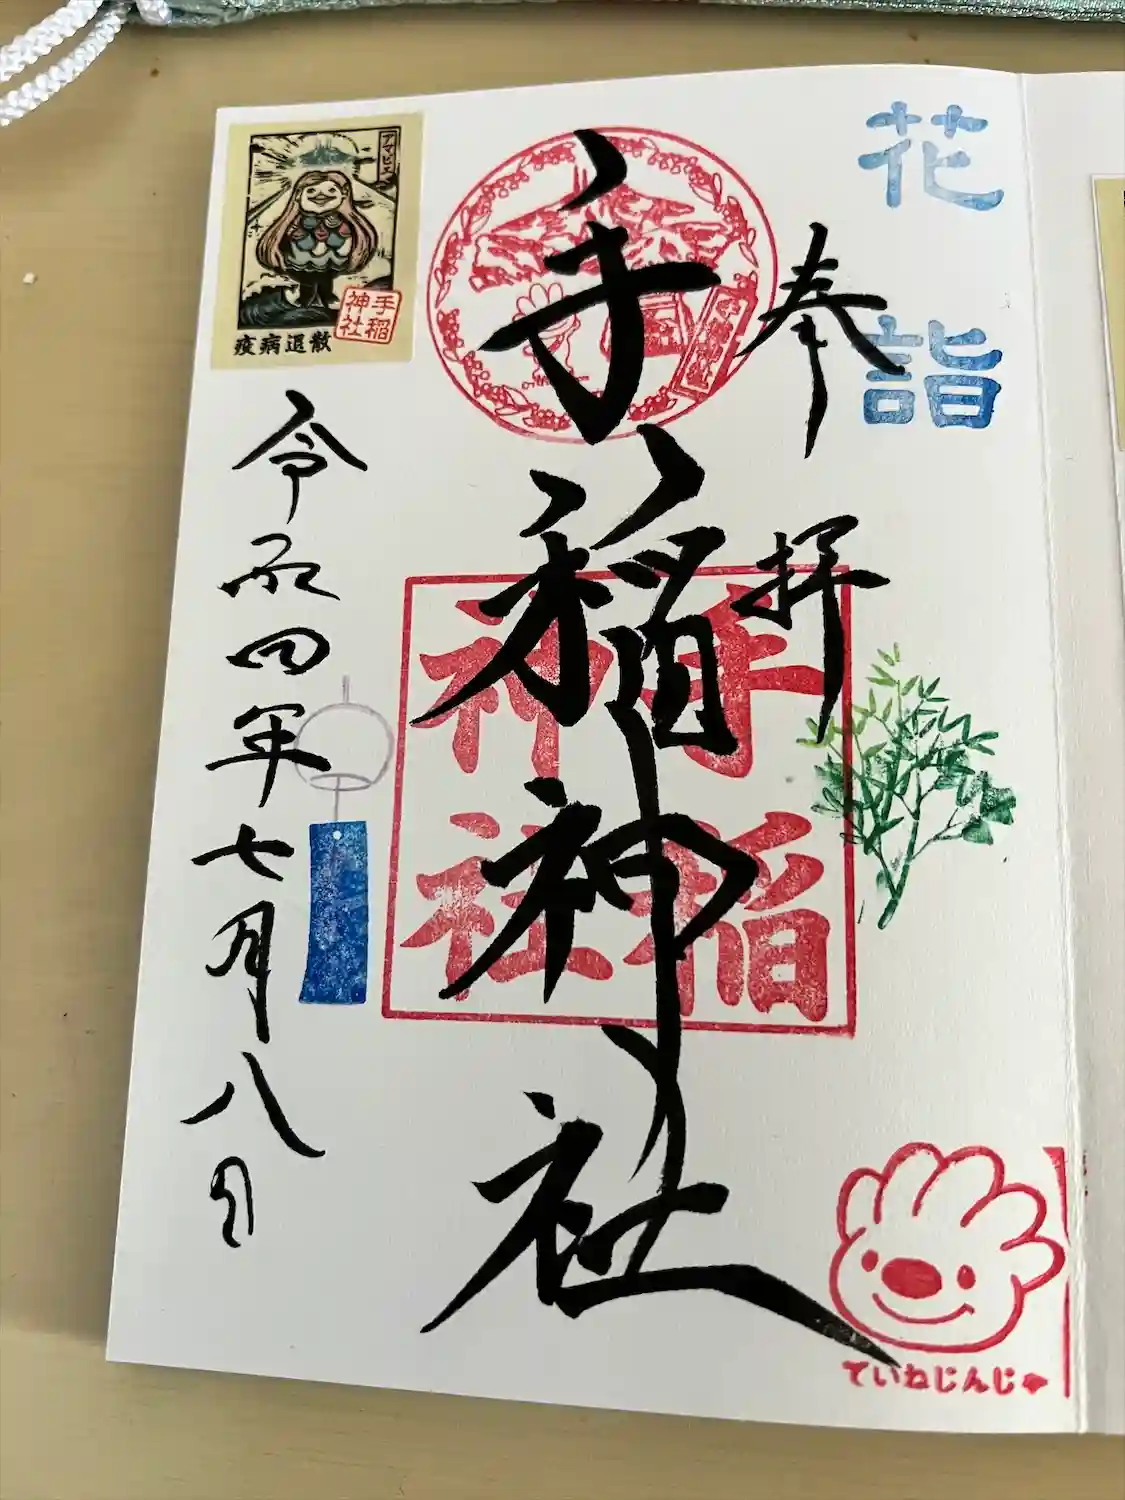 花詣
奉拝
手稲神社
手稲神社
令和四年七月八日
アマビエ
手稲神社
疫病退散
ていねじんじゃ